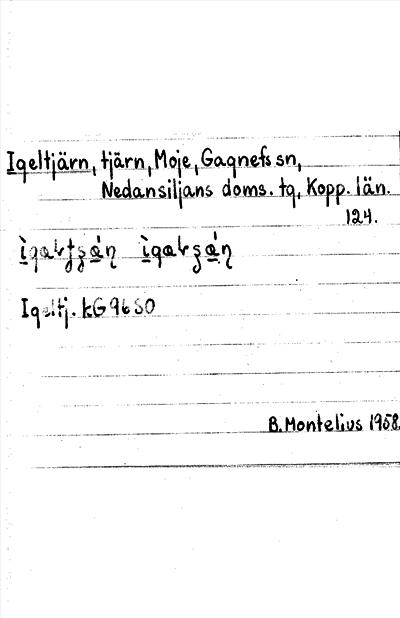 Igeltjärn, tjärn, Moje, Gagnefs sn,
Nedansiljans doms. tg, Kopp. län.
124.
Igeltj. kG 96 SO
B. Montelius 1958.